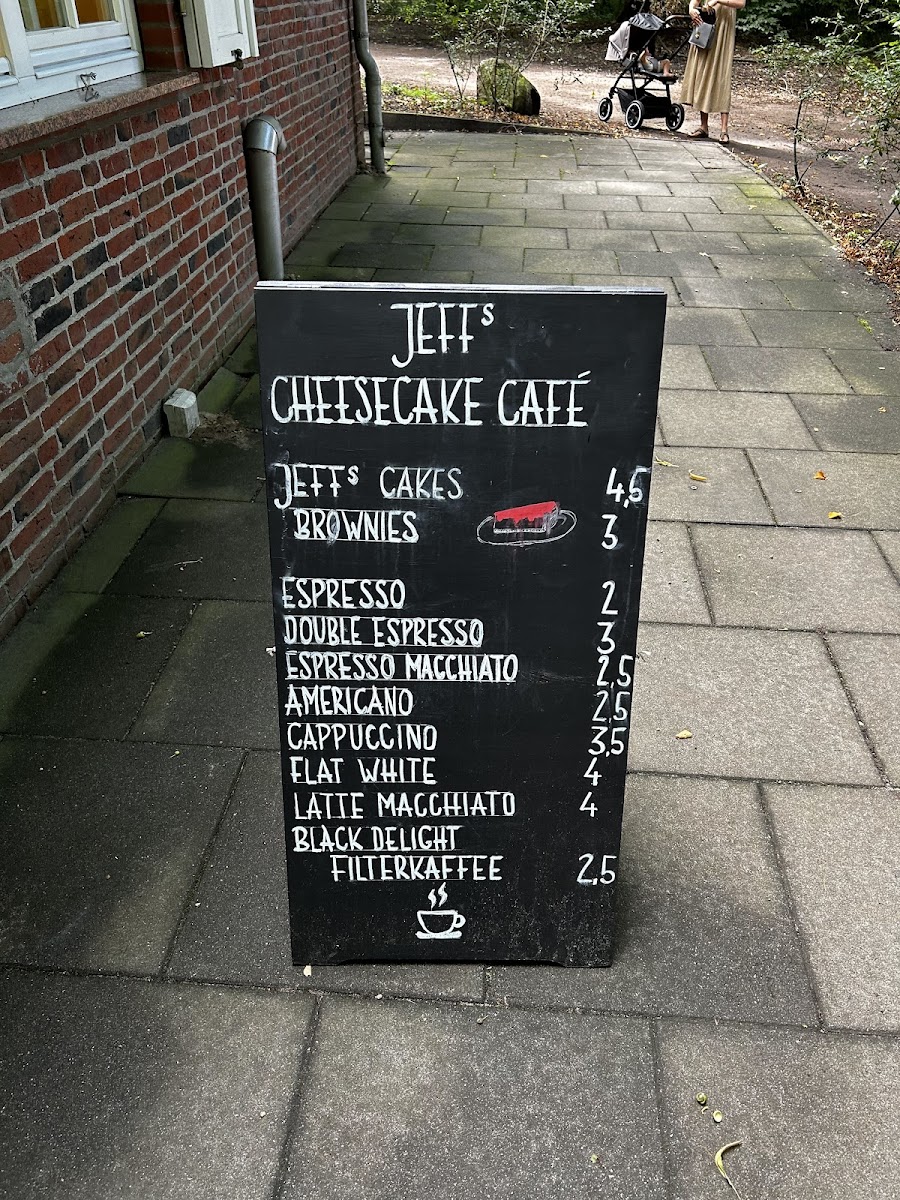 JEFFs
CHEESECAKE CAFÉ
JEFFs CAKES 4,5
BROWNIES 3
ESPRESSO 2
DOUBLE ESPRESSO 3
ESPRESSO MACCHIATO 2,5
AMERICANO 2,5
CAPPUCCINO 3,5
FLAT WHITE 4
LATTE MACCHIATO 4
BLACK DELIGHT
FILTERKAFFEE 2,5